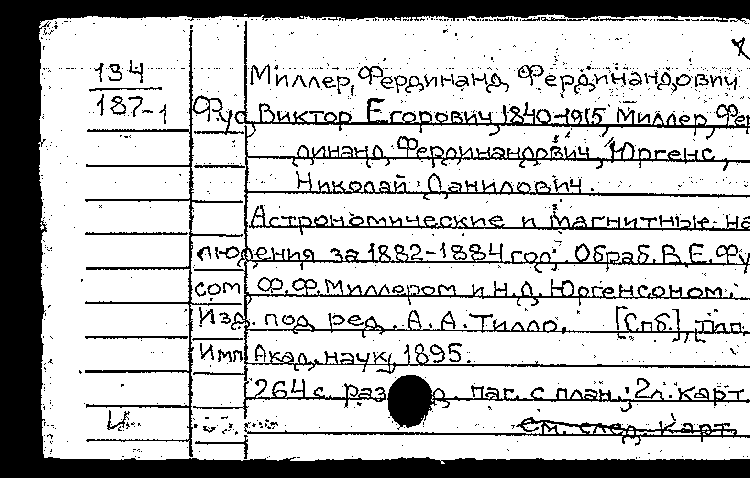 134
187-1
Миллер, Фердинанд Фердинандович
Фус, Виктор Егорович, 1840-1915, Миллер, Фер
динанд Фердинандович, Юргенс,
Николай Данилович.
Астрономические и магнитные на
людения за 1882-1884 год; Обраб. В.Е.Фу
сом, Ф.Ф.Миллером и Н.Д. Юргенсоном.
Изд. под ред. А.А.Тилло. [Спб.], тип.
Имп. Акад. наук, 1895.
264 с. раз р. паг. с план.; 2л. карт.
См. след. карт.